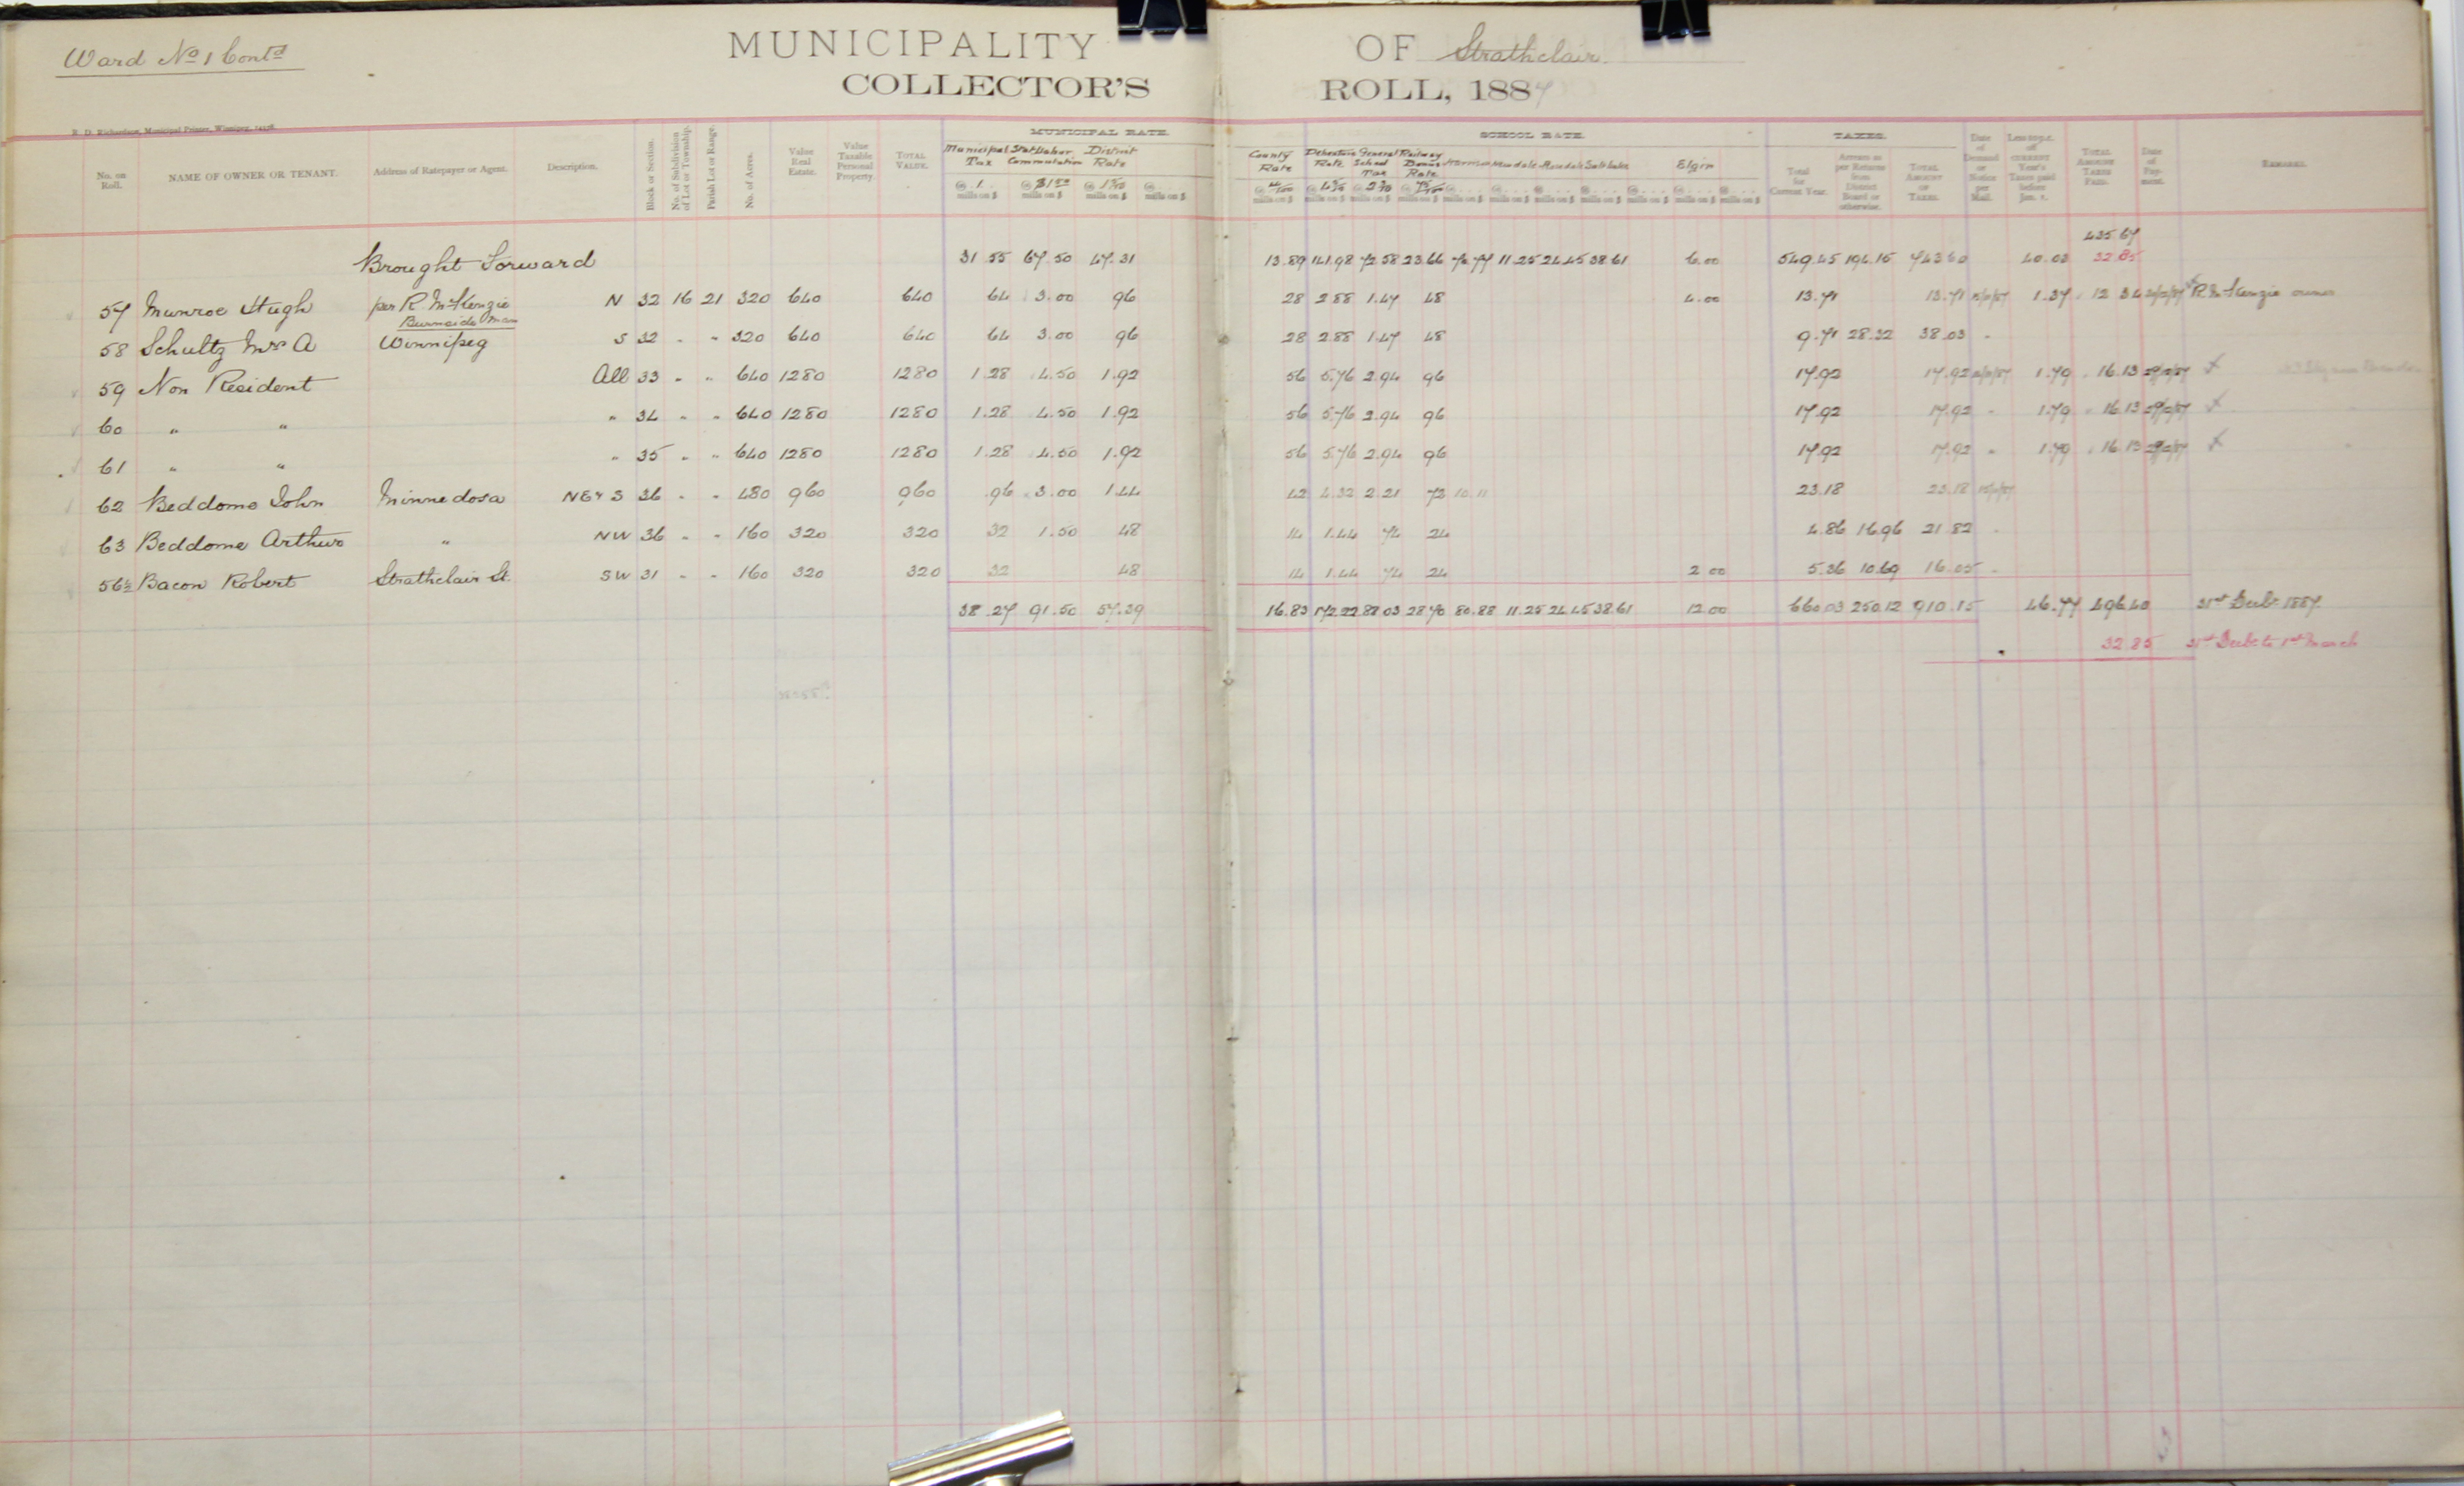 Ward No 1 Contd
MUNICIPALITY OF Strathclair
COLLECTOR'S ROLL, 1887
R. D. Richardson, Municipal Printer, Winnipeg.
MUNICIPAL RATE. SCHOOL RATE. TAXES.
No. on Roll. NAME OF OWNER OR TENANT. Address of Ratepayer or Agent. Description. Block or Section. No. of Subdivision of Lot or Township. Parish Lot or Range. No. of Acres. Value Real Estate. Value Taxable Personal Property. TOTAL VALUE. Municipal Tax Stat Labor Commutation District Rate County Rate Debenture Rate General School Tax Railway Bonus Rate Harrison Newdale Salt Lake Elgin Total for Current Year. Arrears as per Returns from District Board or otherwise. TOTAL AMOUNT OF TAXES. Date of Demand or Notice per Mail. Less 10 p.c. off CURRENT Year's Taxes paid before Jan. 1. TOTAL AMOUNT TAXES PAID. Date of Payment. REMARKS.
435 67
Brought Forward 31.55 67.50 47.31 13.89 141.98 72.58 23.66 70.77 11.25 24.45 38.61 6.00 549.45 194.15 743.60 40.03 32.85
57 Munroe Hugh per R. McKenzie N 32 16 21 320 640 640 64 3.00 96 28 2.88 1.47 48 4.00 13.71 13.71 1.37 12 34 R. McKenzie owner
Burnside Man
58 Schultz Mrs A Winnipeg S 32 " " 320 640 640 64 3.00 96 28 2.88 1.47 48 9.71 28.32 38.03
59 Non Resident All 33 " " 640 1280 1280 1.28 4.50 1.92 56 5.76 2.94 96 17.92 17.92 1.79 16.13
60 " " " 34 " " 640 1280 1280 1.28 4.50 1.92 56 5.76 2.94 96 17.92 17.92 " 1.79 16.13
61 " " " 35 " " 640 1280 1280 1.28 4.50 1.92 56 5.76 2.94 96 17.92 17.92 " 1.79 16.13
62 Beddome John Minnedosa NE & S 36 " " 480 960 960 .96 3.00 1.44 42 4.32 2.21 72 10.11 23.18 23.18
63 Beddome Arthur " NW 36 " " 160 320 320 32 1.50 48 14 1.44 74 24 4.86 16.96 21.82
56½ Bacon Robert Strathclair St. SW 31 " " 160 320 320 32 48 14 1.44 74 24 2 00 5.36 10.69 16.05
38.27 91.50 57.39 16.83 172.22 88.03 28.70 80.88 11.25 24.45 38.61 12.00 660.03 250.12 910.15 46.77 496.40 31st Decbr 1887.
32.85 31st Decbr to 1st March